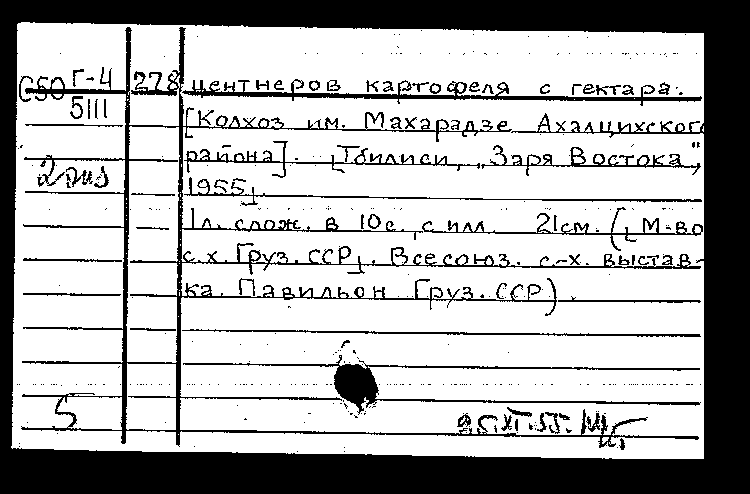 С50 Г-4 278 центнеров картофеля с гектара.
5111
[Колхоз им. Махарадзе Ахалцихского
района]. [Тбилиси, „Заря Востока",
2 экз
1955].
1л. слож. в 10с., с илл. 21см. ([М-во
с.х. Груз. ССР]. Всесоюз. с-х. выстав-
ка. Павильон Груз. ССР).
5
25.XI.55.